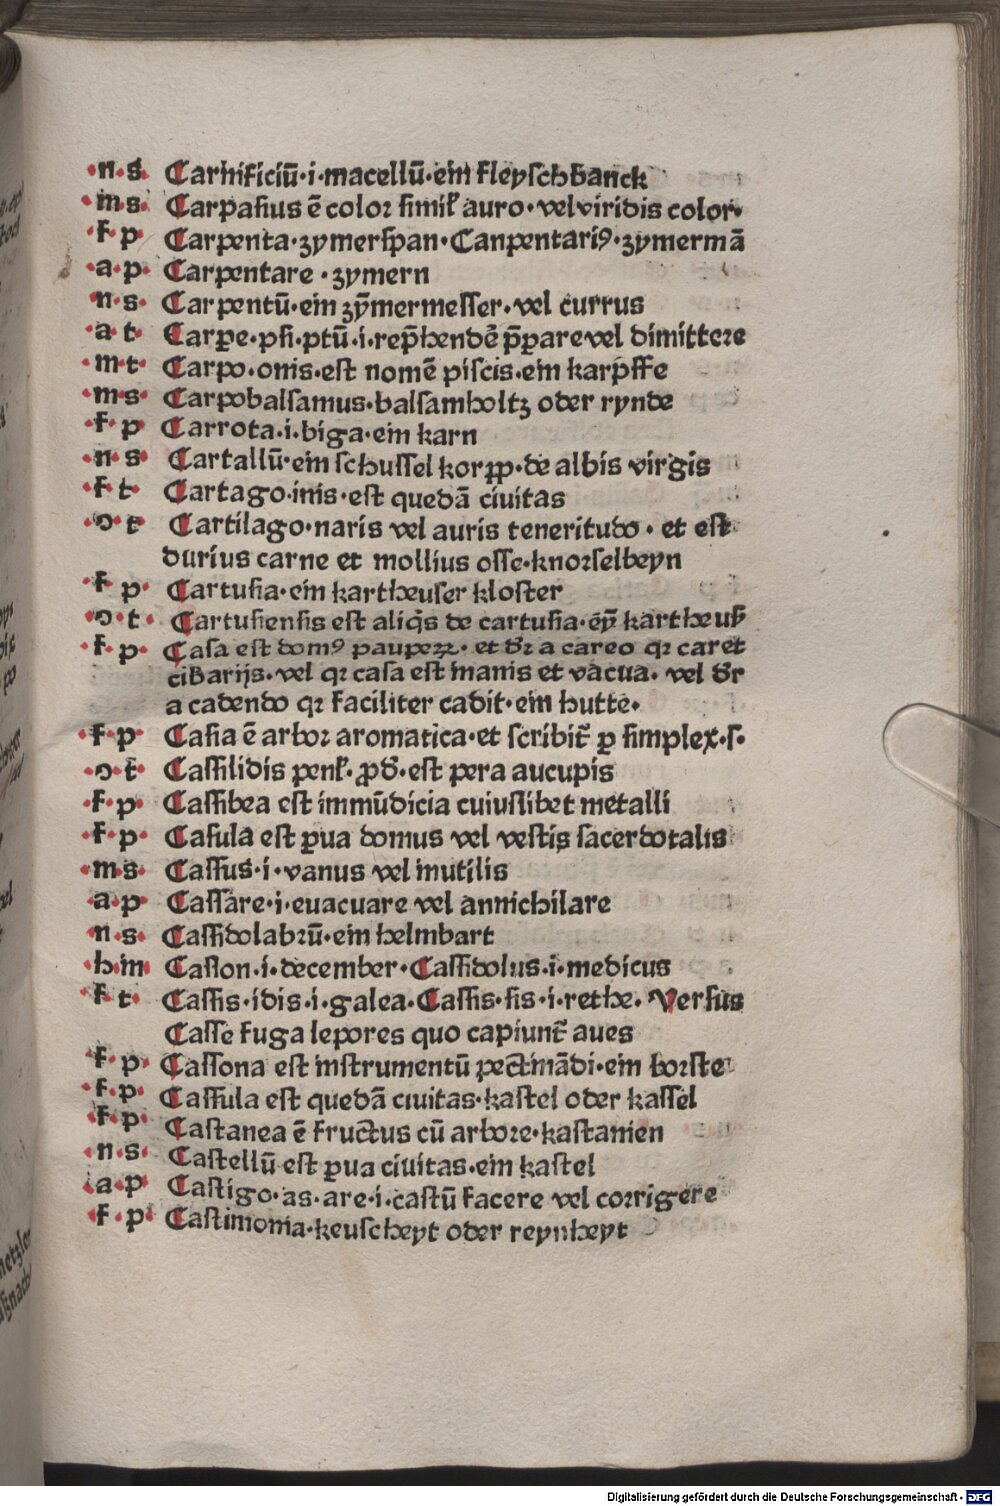 ·n·s· Carnificiū·i·macellū·ein fleyschbanck
·m·s· Carpasius ē color simil' auro·vel viridis color·
·f·p· Carpenta·zymerspan·Canpentariꝰ·zymermā
·a·p· Carpentare·zymern
·n·s· Carpentū·ein zȳmermesser·vel currus
·a·t· Carpe·psi·ptū·i·rep̄hendē p̄parare vel dimittere
·m·t· Carpo·onis·est nomē piscis·ein karpffe
·m·s· Carpobalsamus·balsamholtz oder rynde
·f·p· Carrota·i·biga·ein karn
·n·s· Cartallū·ein schussel korpp·de albis virgis
·f·t· Cartago·inis·est quedā ciuitas
·ꝯ·t· Cartilago·naris vel auris teneritudo·et est
durius carne et mollius osse·knorselbeyn
·f·p· Cartusia·ein kartheuser kloster
·ꝯ·t· Cartusiensis est aliq̄s de cartusia·
·f·p· Casa est domꝰ pauperꝝ·et dr̄ a careo qꝛ caret
cibarijs·vel qꝛ casa est inanis et vacua·vel dr̄
a cadendo qꝛ faciliter cadit·ein hutte·
·f·p· Casia ē arbor aromatica·et scribit̄ ꝑ simplex·s·
·ꝯ·t· Cassilidis penl'·ꝓd'·est pera aucupis
·f·p· Cassibea est immūdicia cuiuslibet metalli
·f·p· Casula est ꝑua domus vel vestis sacerdotalis
·m·s· Cassus·i·vanus vel inutilis
·a·p· Cassare·i·euacuare vel annichilare
·n·s· Cassidolabrū·ein helmbart
·h·m· Caslon·i·december·Cassidolus·i·medicus
·f·t· Cassis·idis·i·galea·Cassis·sis·i·rethe·Versus
Casse fuga lepores quo capiunt̄ aues
·f·p· Cassona est instrumentū pectinādi·ein borste
·f·p· Cassula est quedā ciuitas·kastel oder kassel
·f·p· Castanea ē fructus cū arbore·kastanien
·n·s· Castellū est ꝑua ciuitas·ein kastel
·a·p· Castigo·as·are·i·castū facere vel corrigere
·f·p· Castimonia·keuscheyt oder reynheyt
Digitalisierung gefördert durch die Deutsche Forschungsgemeinschaft - DFG